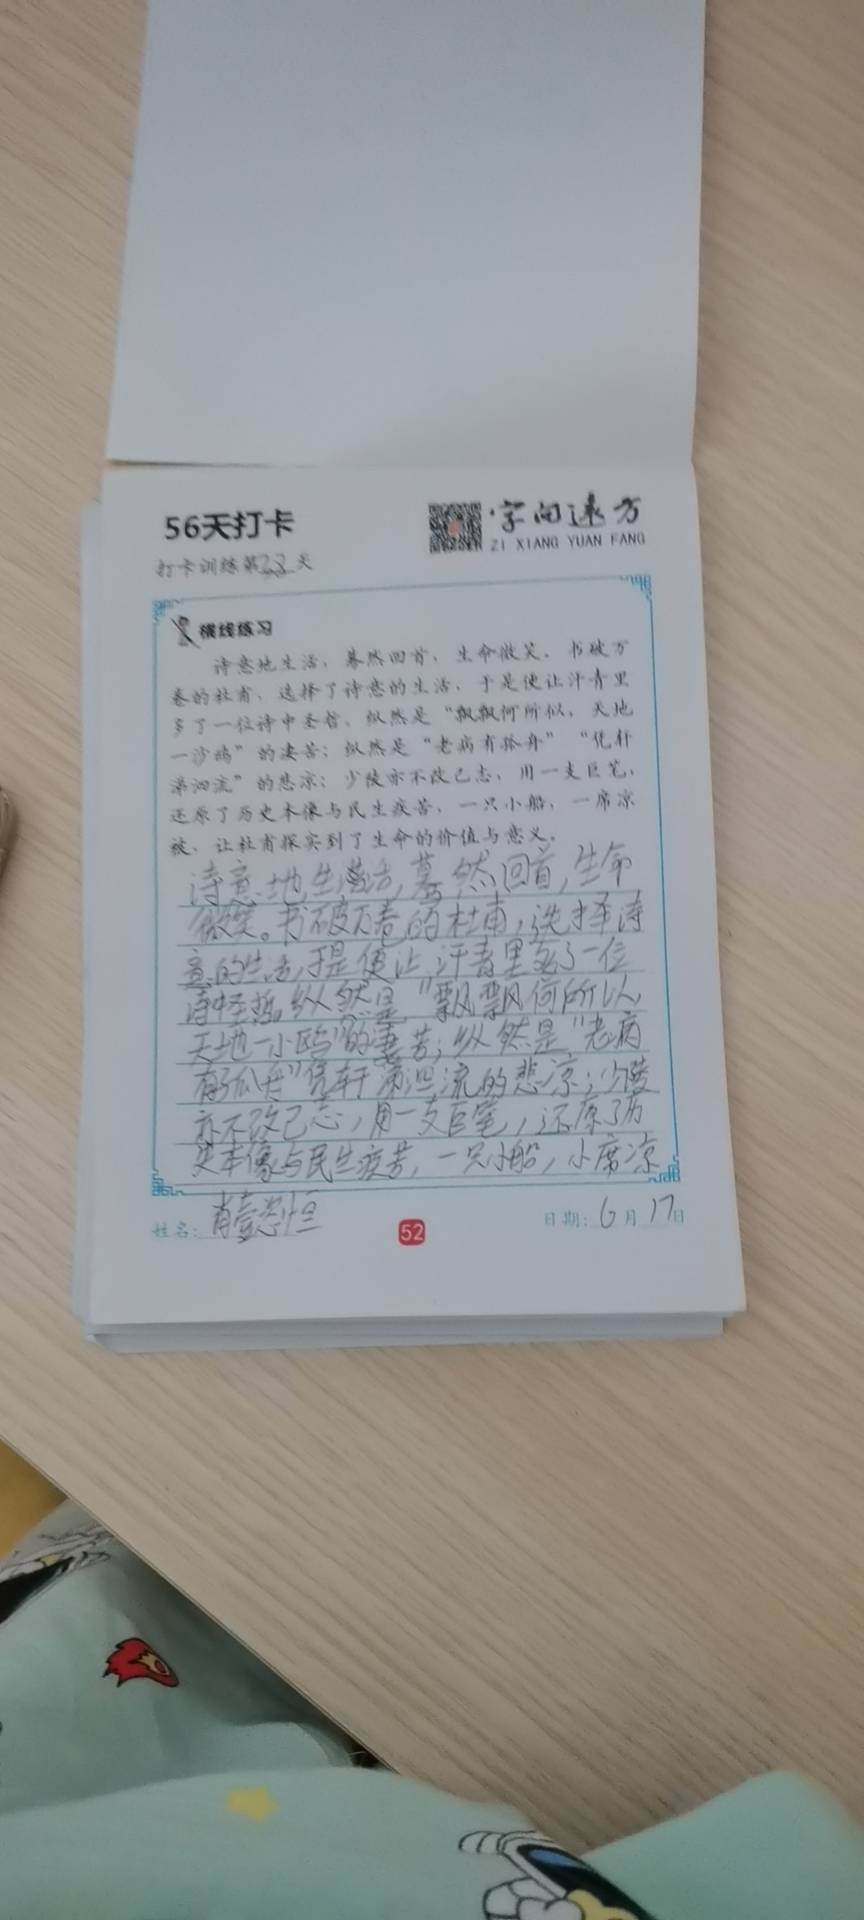 56天打卡
·字向远方
ZI XIANG YUAN FANG
打卡训练第23天
横线练习
诗意地生活，蓦然回首，生命微笑。书破万
卷的杜甫，选择了诗意的生活，于是便让汗青里
多了一位诗中圣哲。纵然是“飘飘何所似，天地
一沙鸥”的凄苦；纵然是“老病有孤舟”“凭轩
涕泗流”的悲凉；少陵亦不改己志，用一支巨笔，
还原了历史本像与民生疲苦，一只小船，一席凉
被，让杜甫探实到了生命的价值与意义。
诗意地生活，蓦然回首，生命
微笑。书破万卷的杜甫，选择诗
意的生活，于是便让汗青里多了一位
诗圣哲。纵然是“飘飘何所以，
天地一小鸥”的凄苦；纵然是“老病
有孤舟”凭轩涕泗流的悲凉；少陵
亦不改己志，用一支巨笔，还原了历
史本像与民生疲苦，一只小船，小席凉
姓名：肖壹恒
52
日期：6月17日